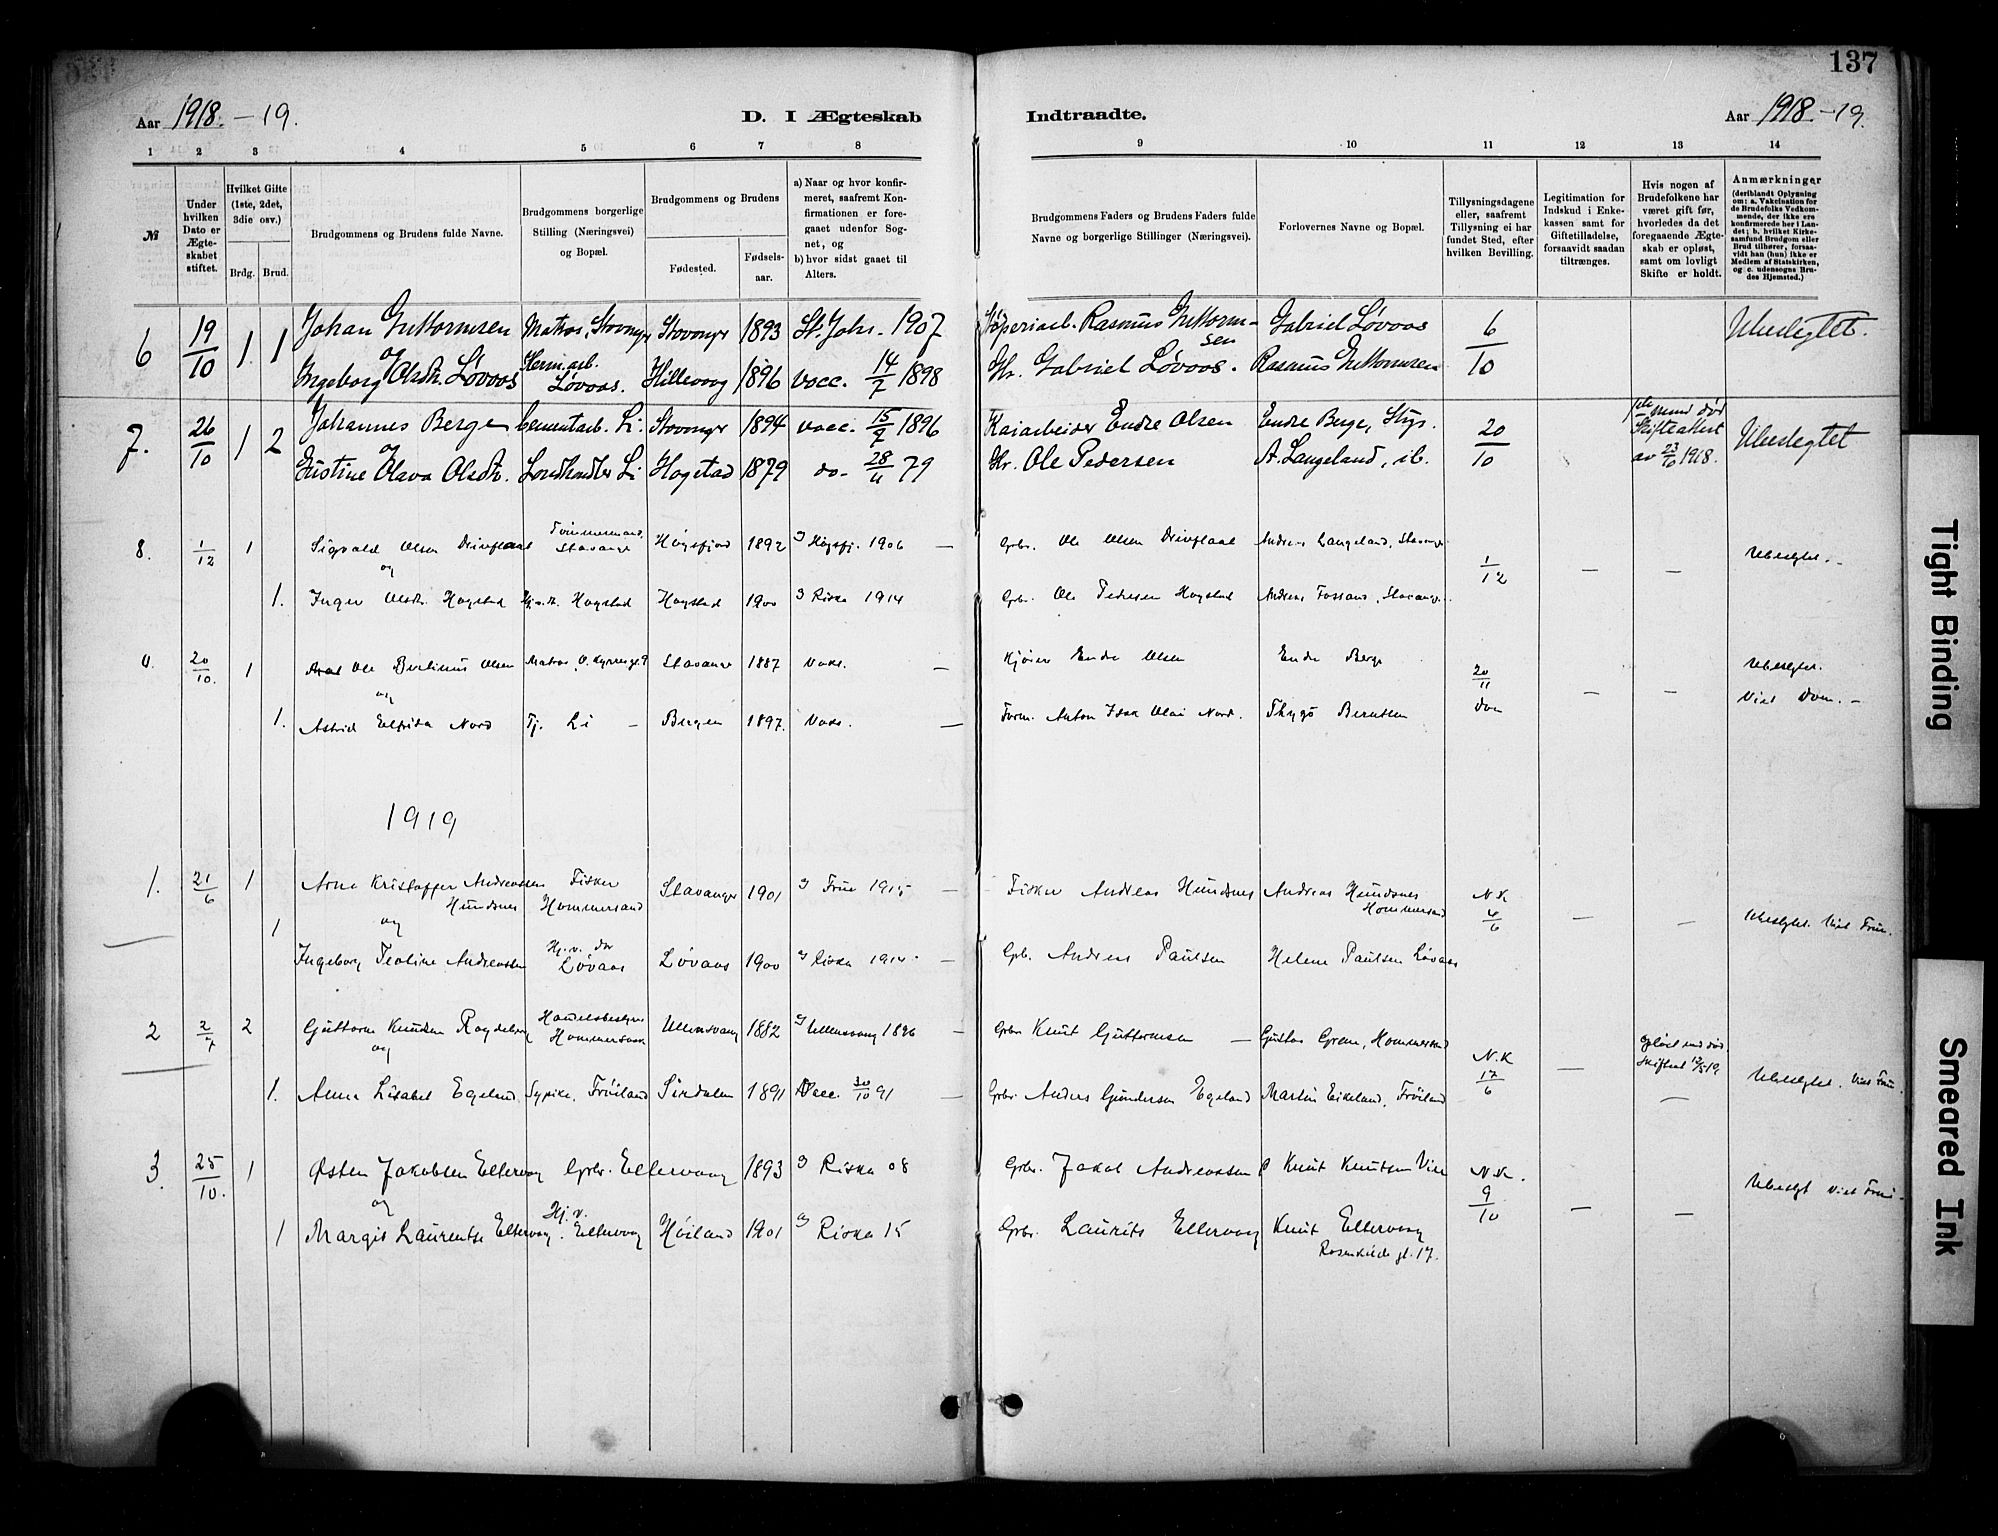 137
Aar 1918.-19.
D. I Ægteskab
Indtraadte.
Aar 1918.-19.
1 2 3 4 5 6 7 8 9 10 11 12 13 14
№
Under hvilken Dato er Ægteskabet stiftet.
Hvilket Gifte (1ste, 2det, 3die osv.)
Brdg. Brud.
Brudgommens og Brudens fulde Navne.
Brudgommens borgerlige Stilling (Næringsvei) og Bopæl.
Brudgommens og Brudens
Fødested.
Fødselsaar.
a) Naar og hvor konfirmeret, saafremt Konfirmationen er foregaaet udenfor Sognet, og
b) hvor sidst gaaet til Alters.
Brudgommens Faders og Brudens Faders fulde Navne og borgerlige Stillinger (Næringsvei).
Forlovernes Navne og Bopæl.
Tillysningsdagene eller, saafremt Tillysning ei har fundet Sted, efter hvilken Bevilling.
Legitimation for Indskud i Enkekassen samt for Giftetilladelse, forsaavidt saadan tiltrænges.
Hvis nogen af Brudefolkene har været gift før, hvorledes da det foregaaende Ægteskab er opløst, samt om lovligt Skifte er holdt.
Anmærkninger
(deriblandt Oplysning om: a. Vakcination for de Brudefolks Vedkommende, der ikke ere konfirmerede her i Landet; b. hvilket Kirkesamfund Brudgom eller Brud tilhører, forsaavidt han (hun) ikke er Medlem af Statskirken, og c. udensogns Brudes Hjemsted.)
6 19/10 1. 1 Johan Guttormsen Matros, Stavanger Stavanger 1893 St. Joh. 1907 Rasmus Guttormsen Gabriel Løvaas 6/10 Ubeslegtet.
og
Ingeborg Olsdtr. Løvaas Løvaas. Hillevaag 1896 vacc. 14/7 1898 Gabriel Løvaas. Rasmus Guttormsen
7. 26/10 1 2 Johannes Berge Cementarb. Li. Stavanger 1894 vacc. 15/9 1896 Kaiarbeider Endre Olsen Endre Berge, Stvgr. 20/10 Skifteattest av 23/10 1918. Ubeslegtet
og
Gustine Olava Olsdtr. Landhandler Li Hogstad 1879 do- 28/11 79 Ole Pedersen A. Langeland, ib.
8. 1/12 1 Sigvald Olsen Tømmermand, Stavanger Høgsfjord 1892 Høgsfj. 1906 – Grbr. Ole Olsen Andreas Langeland, Stavanger 1/12 – – Ubeslgtet. -
og
1. Inger Olsdtr. Hogstad Hogstad Hogstad 1900 Riska 1914 Grbr. Ole Pedersen Hogstad Andreas Fossans, Stavanger.
20/10. 1 Ole Bertinius Olsen Matros, Stavanger 1887 Vaks. – Endre Olsen Endre Berge 20/11 – – Ubeslgtet.
og Viet Dom. –
1. Astrid Elfrida Nord Tj. Li – Bergen 1897. Vaks. – Form. Anton Isak Olai Nord. Thygo Berntsen Dom
1919
1. 21/6 1 Arne Kristoffer Andreassen Hundsnes Fisker Hommersand Stavanger 1901 Frue 1915 – Fisker Andreas Hundsnes Andreas Hundsnes Hommersand N.K 4/6 – – Ubeslgtet. Viet Frue.
og
1 Ingeborg Teoline Andreassen Hj. v. dr Løvaas Løvaas 1900 Riska 1914. – Grb. Andreas Paulsen Helene Paulsen Løvaas
2 2/7 2 Guttorm Knudsen Handelsbestyrer Hommersaak Ullensvang 1882 Ullensvang 1896 – Grbr Knut Guttormsen – Gustav Grann, Hommersand N.K 17/6 – Opløst ved død, Ubeslgtet. Viet Frue.
og
1. Anna Lisabet Egeland. Sypike, Frøiland Sirdalen 1891 Vacc. 30/10 91 – Grbr. Anders Gundersen Egeland Martin Eikeland, Frøiland –
3. 25/10. 1 Østen Jakobsen Ellevaag Grbr. Ellevaag 1893 Riska 08 Grbr. Jakob Andreassen Knut Knutsen N.K. 9/10 – – Ubeslgt Viet Frue.
og
1 Margit Laurentse Ellevaag. Hj. v. Ellevaag Høiland 1901 Riska 15 Grbr. Laurits Ellevaag Knut Ellevaag
Rosenkilde gt. 17.
Tight Binding
Smeared Ink